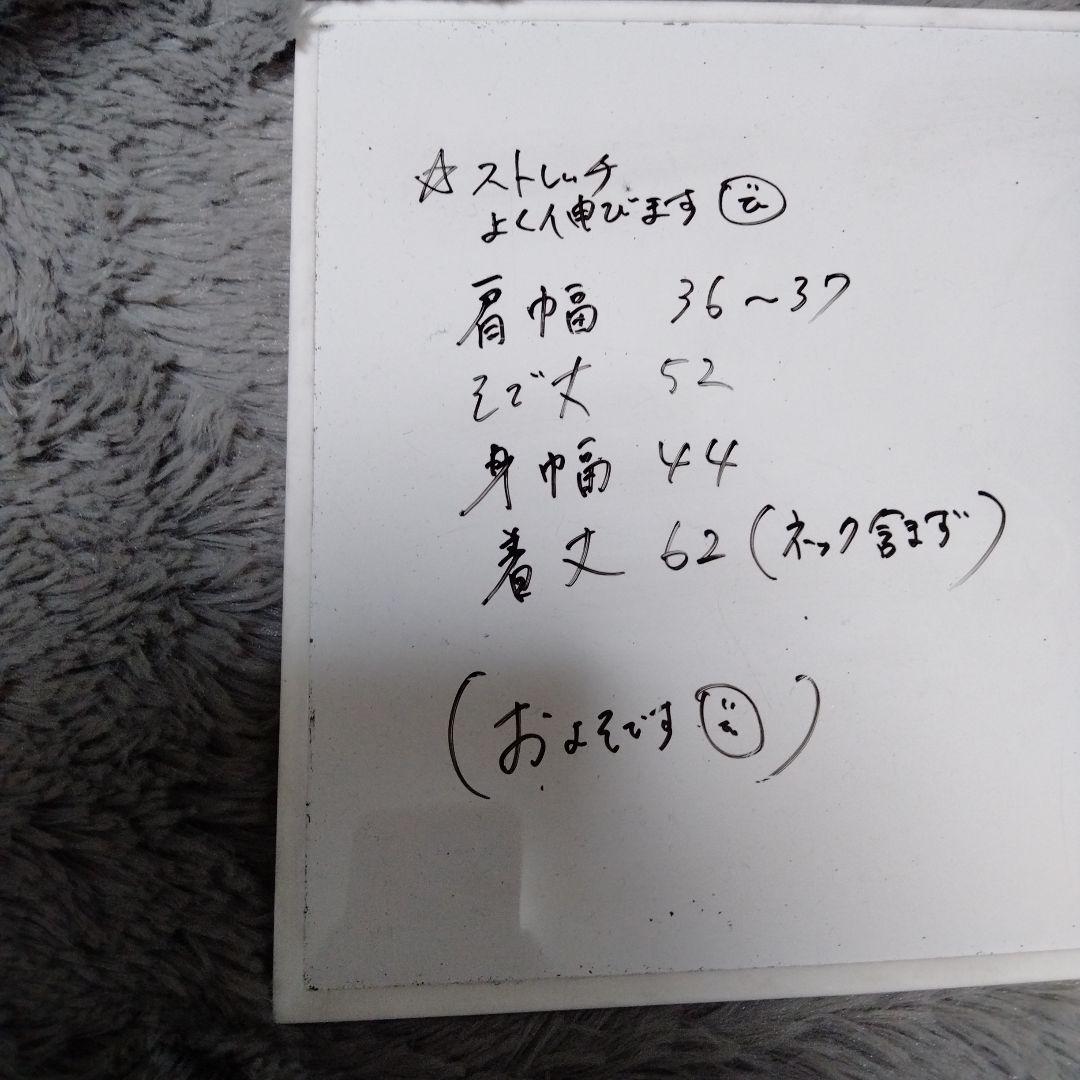 ☆ストレッチ
よく伸びます
肩巾幅 36～37
そで丈 52
身幅 44
着丈 62 (ネック含まず)
(およそです)